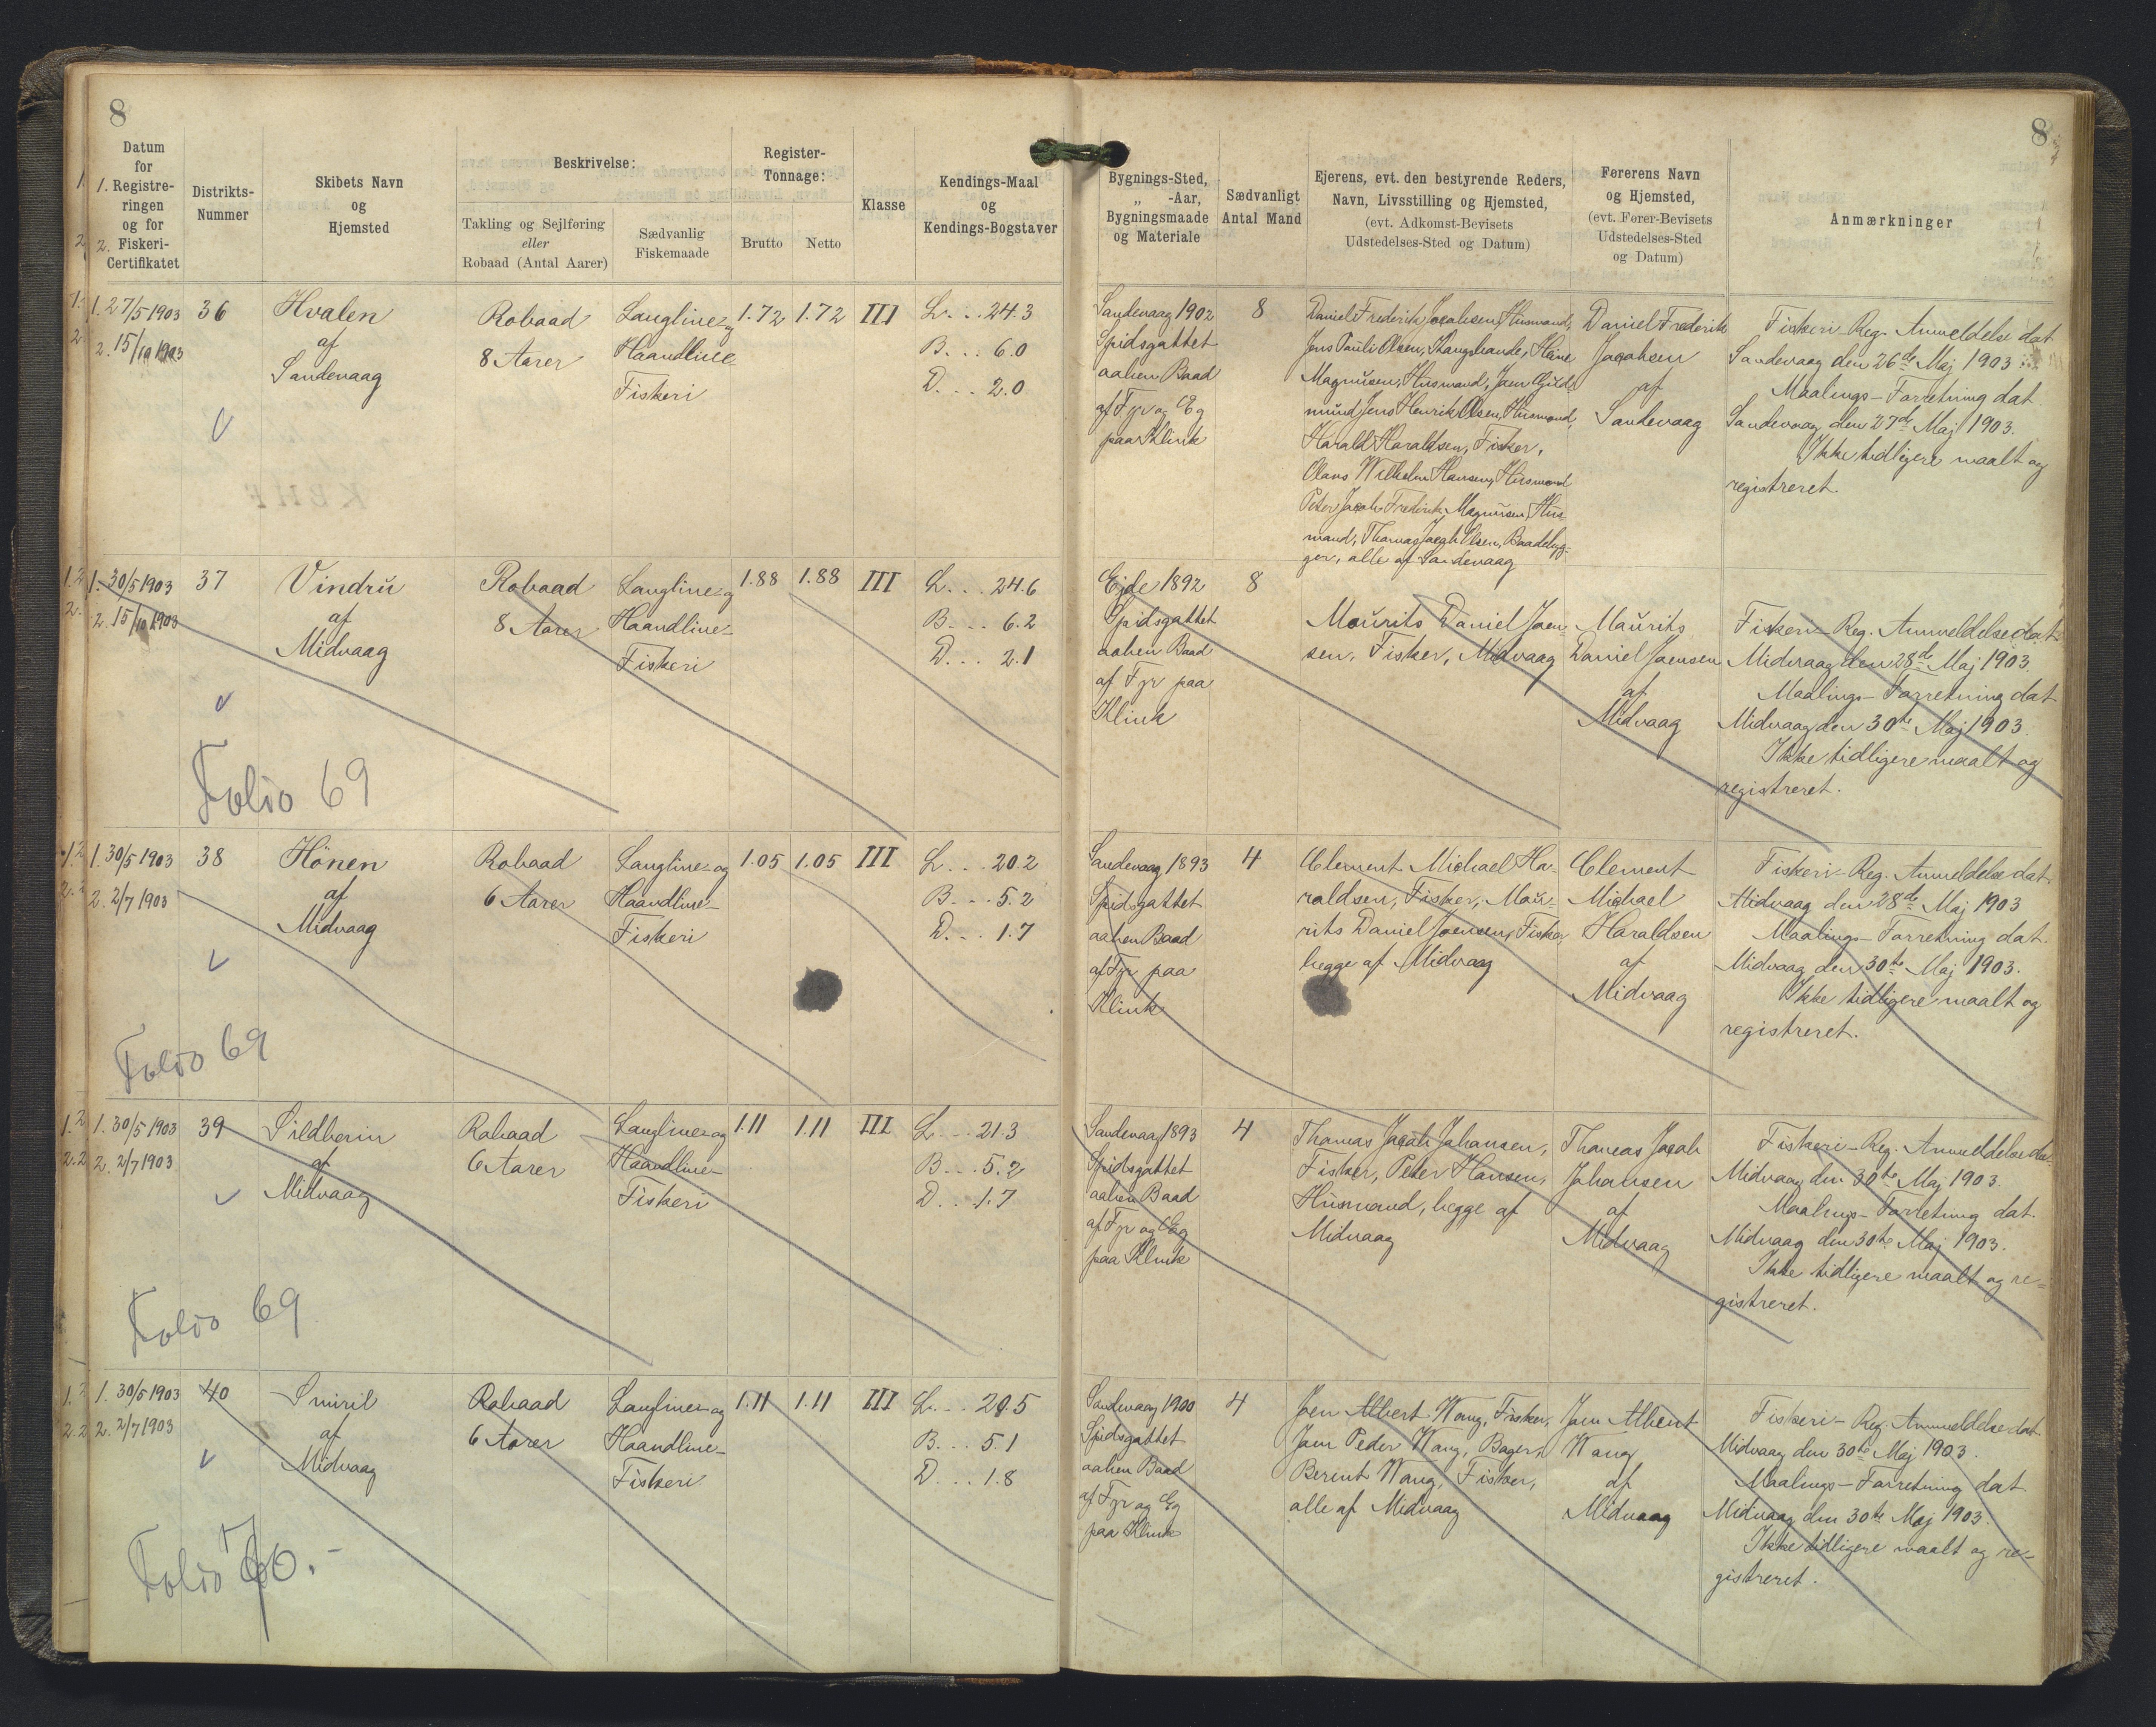 8
8
Datum
for
1. Registre-
ringen
og for
2. Fiskeri-
Certifikatet
Distrikts-
Nummer
Skibets Navn
og
Hjemsted
Beskrivelse:
Takling og Sejlføring
eller
Robaad (Antal Aarer)
Sædvanlig
Fiskemaade
Register-
Tonnage:
Brutto
Netto
Klasse
Kendings-Maal
og
Kendings-Bogstaver
Bygnings-Sted,
„ -Aar,
Bygningsmaade
og Materiale
Sædvanligt
Antal Mand
Ejerens, evt. den bestyrende Reders,
Navn, Livsstilling og Hjemsted,
(evt. Adkomst-Bevisets
Udstedelses-Sted og Datum)
Førerens Navn
og Hjemsted,
(evt. Fører-Bevisets
Udstedelses-Sted
og Datum)
Anmærkninger
1. 27/5 1903
2. 15/10 1903
36
Hvalen
af
Sandevaag
Robaad
8 Aarer
Langline- og
Haandline-
Fiskeri
1.72
1.72
III
L... 24.3
B... 6.0
D... 2.0
Sandevaag 1902
Spidsgattet
aaben Baad
af Fyr og Eg
paa Klink
8
Daniel Frederik Jacobsen, Husmand,
Jens Pauli Olsen, Hans
Magnusen, Husmand, Joen
Jens Henrik Olsen, Husmand,
Harald Haraldsen, Fisker,
Olaus Wilhelm Hansen, Husmand
Peter Jacob Frederik Magnusen, Hus-
mand, Thomas Jacob Olsen, Baadebyg-
ger, alle af Sandevaag
Daniel Frederik
Jacobsen
af
Sandevaag
Fiskeri-Reg. Anmeldelse dat.
Sandevaag den 26de Maj 1903.
Maalings-Forretning dat.
Sandevaag den 27de Maj 1903.
Ikke tidligere maalt og
registreret.
1. 30/5 1903
2. 15/10 1903
37
Vindrú
af
Midvaag
Robaad
8 Aarer
Langline- og
Haandline-
Fiskeri
1.88
1.88
III
L... 24.6
B... 6.2
D... 2.1
Ejde 1892
Spidsgattet
aaben Baad
af Fyr paa
Klink
8
Maurits Daniel Joen-
sen, Fisker, Midvaag
Maurits
Daniel Joensen
af
Midvaag
Fiskeri-Reg. Anmeldelse dat.
Midvaag den 28de Maj 1903.
Maalings-Forretning dat.
Midvaag den 30te Maj 1903.
Ikke tidligere maalt og
registreret.
Folio 69
1. 30/5 1903
2. 2/7 1903
38
Hönen
af
Midvaag
Robaad
6 Aarer
Langline- og
Haandline-
Fiskeri
1.05
1.05
III
L... 20.2
B... 5.2
D... 1.7
Sandevaag 1893
Spidsgattet
aaben Baad
af Fyr paa
Klink
4
Clement Michael Ha-
raldsen, Fisker, Mau-
rits Daniel Joensen, Fisker,
begge af Midvaag
Clement
Michael
Haraldsen
af
Midvaag
Fiskeri-Reg. Anmeldelse dat.
Midvaag den 28de Maj 1903
Maalings-Forretning dat.
Midvaag den 30te Maj 1903.
Ikke tidligere maalt og
registreret.
Folio 69
1. 30/5 1903
2. 2/7 1903
39
Sildberin
af
Midvaag
Robaad
6 Aarer
Langline- og
Haandline-
Fiskeri
1.11
1.11
III
L... 21.3
B... 5.2
D... 1.7
Sandevaag 1893
Spidsgattet
aaben Baad
af Fyr og Eg
paa Klink
4
Thomas Jacob Johansen,
Fisker, Peter Hansen,
Husmand, begge af
Midvaag
Thomas Jacob
Johansen
af
Midvaag
Fiskeri-Reg. Anmeldelse dat.
Midvaag den 30te Maj 1903.
Maalings-Forretning dat.
Midvaag den 30te Maj 1903.
Ikke tidligere maalt og re-
gistreret.
Folio 69
1. 30/5 1903
2. 2/7 1903
40
Smiril
af
Midvaag
Robaad
6 Aarer
Langline- og
Haandline-
Fiskeri
1.11
1.11
III
L... 20.5
B... 5.1
D... 1.8
Sandevaag 1900
Spidsgattet
aaben Baad
af Fyr og Eg
paa Klink
4
Joen Albert Wang, Fisker,
Joen Peder Wang, Bager,
Berint Wang, Fisker,
alle af Midvaag
Joen Albert
Wang
af
Midvaag
Fiskeri-Reg. Anmeldelse dat.
Midvaag den 30te Maj 1903.
Maalings-Forretning dat.
Midvaag den 30te Maj 1903.
Ikke tidligere maalt og re-
gistreret.
Folio 70.-